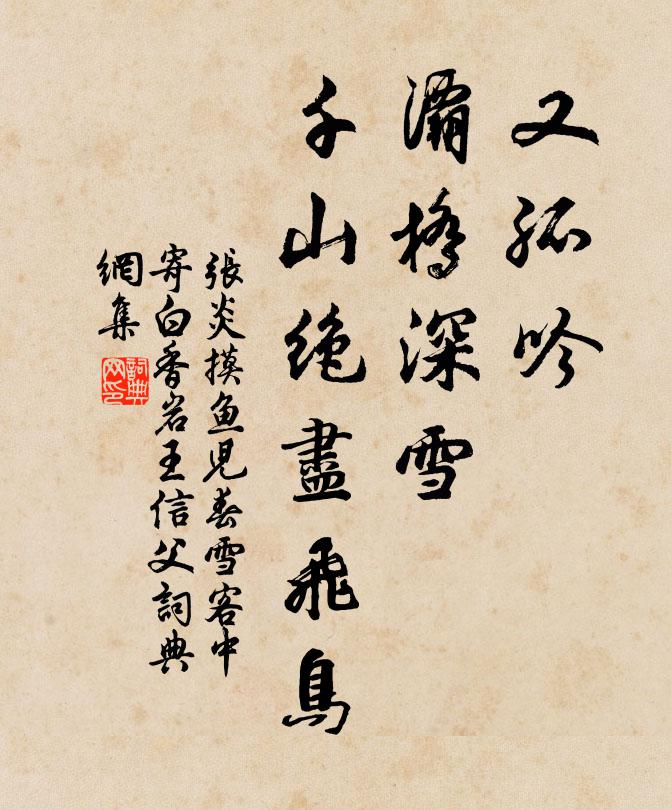 又孤吟
灞橋深雪
千山絶盡飛鳥
張炎摸魚児春雪客中
寄白香岩王信父詞典
網集
詞典
网印